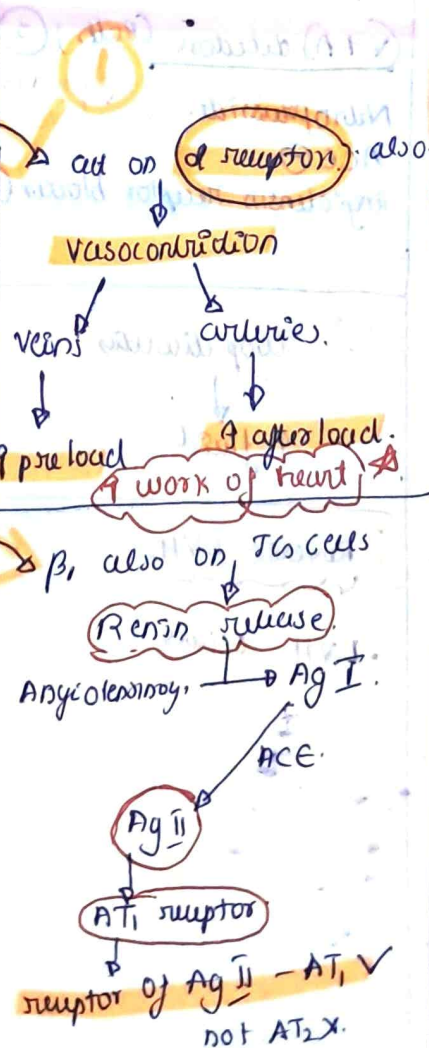 1
act on α receptor. also
vasocontriction
veins arteries.
↑ preload ↑ afterload.
↑ work of heart
β1 also on JG cells
Renin release.
Angiotensinog. → Ag I.
ACE.
Ag II
AT1 receptor
receptor of Ag II - AT1 ✓
not AT2 x.